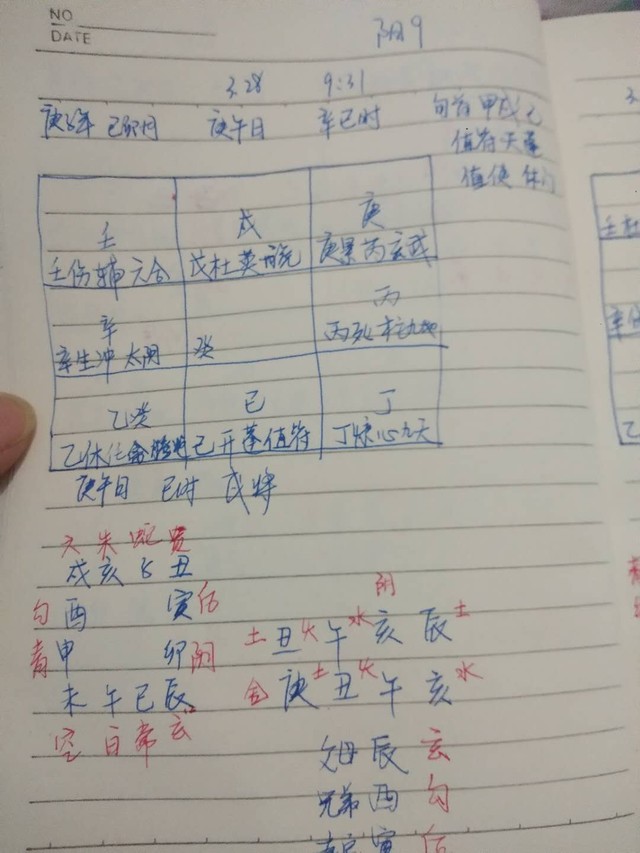 NO
DATE
阳9
3.28 9:31
庚子年 己卯月 庚午日 辛巳时 旬首甲戌己
值符天蓬
值使休门
壬 戊 庚
壬伤辅六合 戊杜英 庚景芮玄武
辛 丙
辛生冲太阴 癸 丙死柱九地
乙 己 丁
乙休任 己开蓬值符 丁惊心九天
庚午日 巳时 戌将
六 朱 蛇 贵
戌 亥 子 丑
勾 酉 寅 后 阴
青 申 卯 阴 土 丑 火 午 水 亥 辰 土
未 午 巳 辰 金 庚 土 丑 火 午 亥 水
空 白 常 玄
父母 辰 玄
兄弟 酉 勾
寅 后